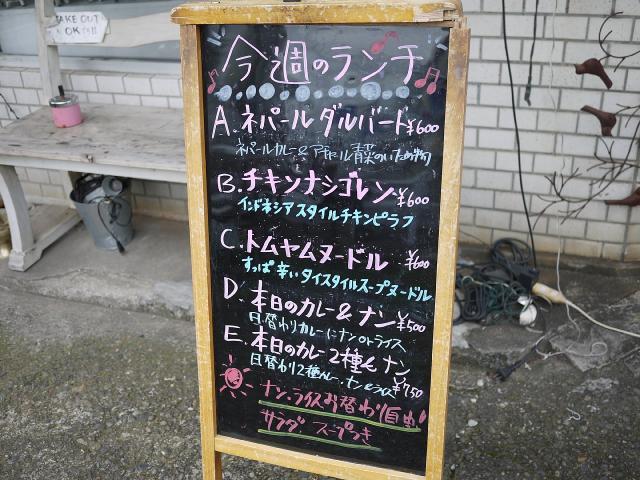 TAKE OUT
OK!!
今週のランチ
A. ネパール ダルバート ¥600
ネパールカレー&アチャール青菜のいため物
B. チキンナシゴレン ¥600
インドネシアスタイルチキンピラフ
C. トムヤムヌードル ¥600
すっぱ辛いタイスタイルスープヌードル
D. 本日のカレー&ナン ¥500
日替わりカレーにナンorライス
E. 本日のカレー2種&ナン
日替わり2種カレー、ナン&ライス ¥750
ナン・ライスお替わり自由!
サラダ スープつき